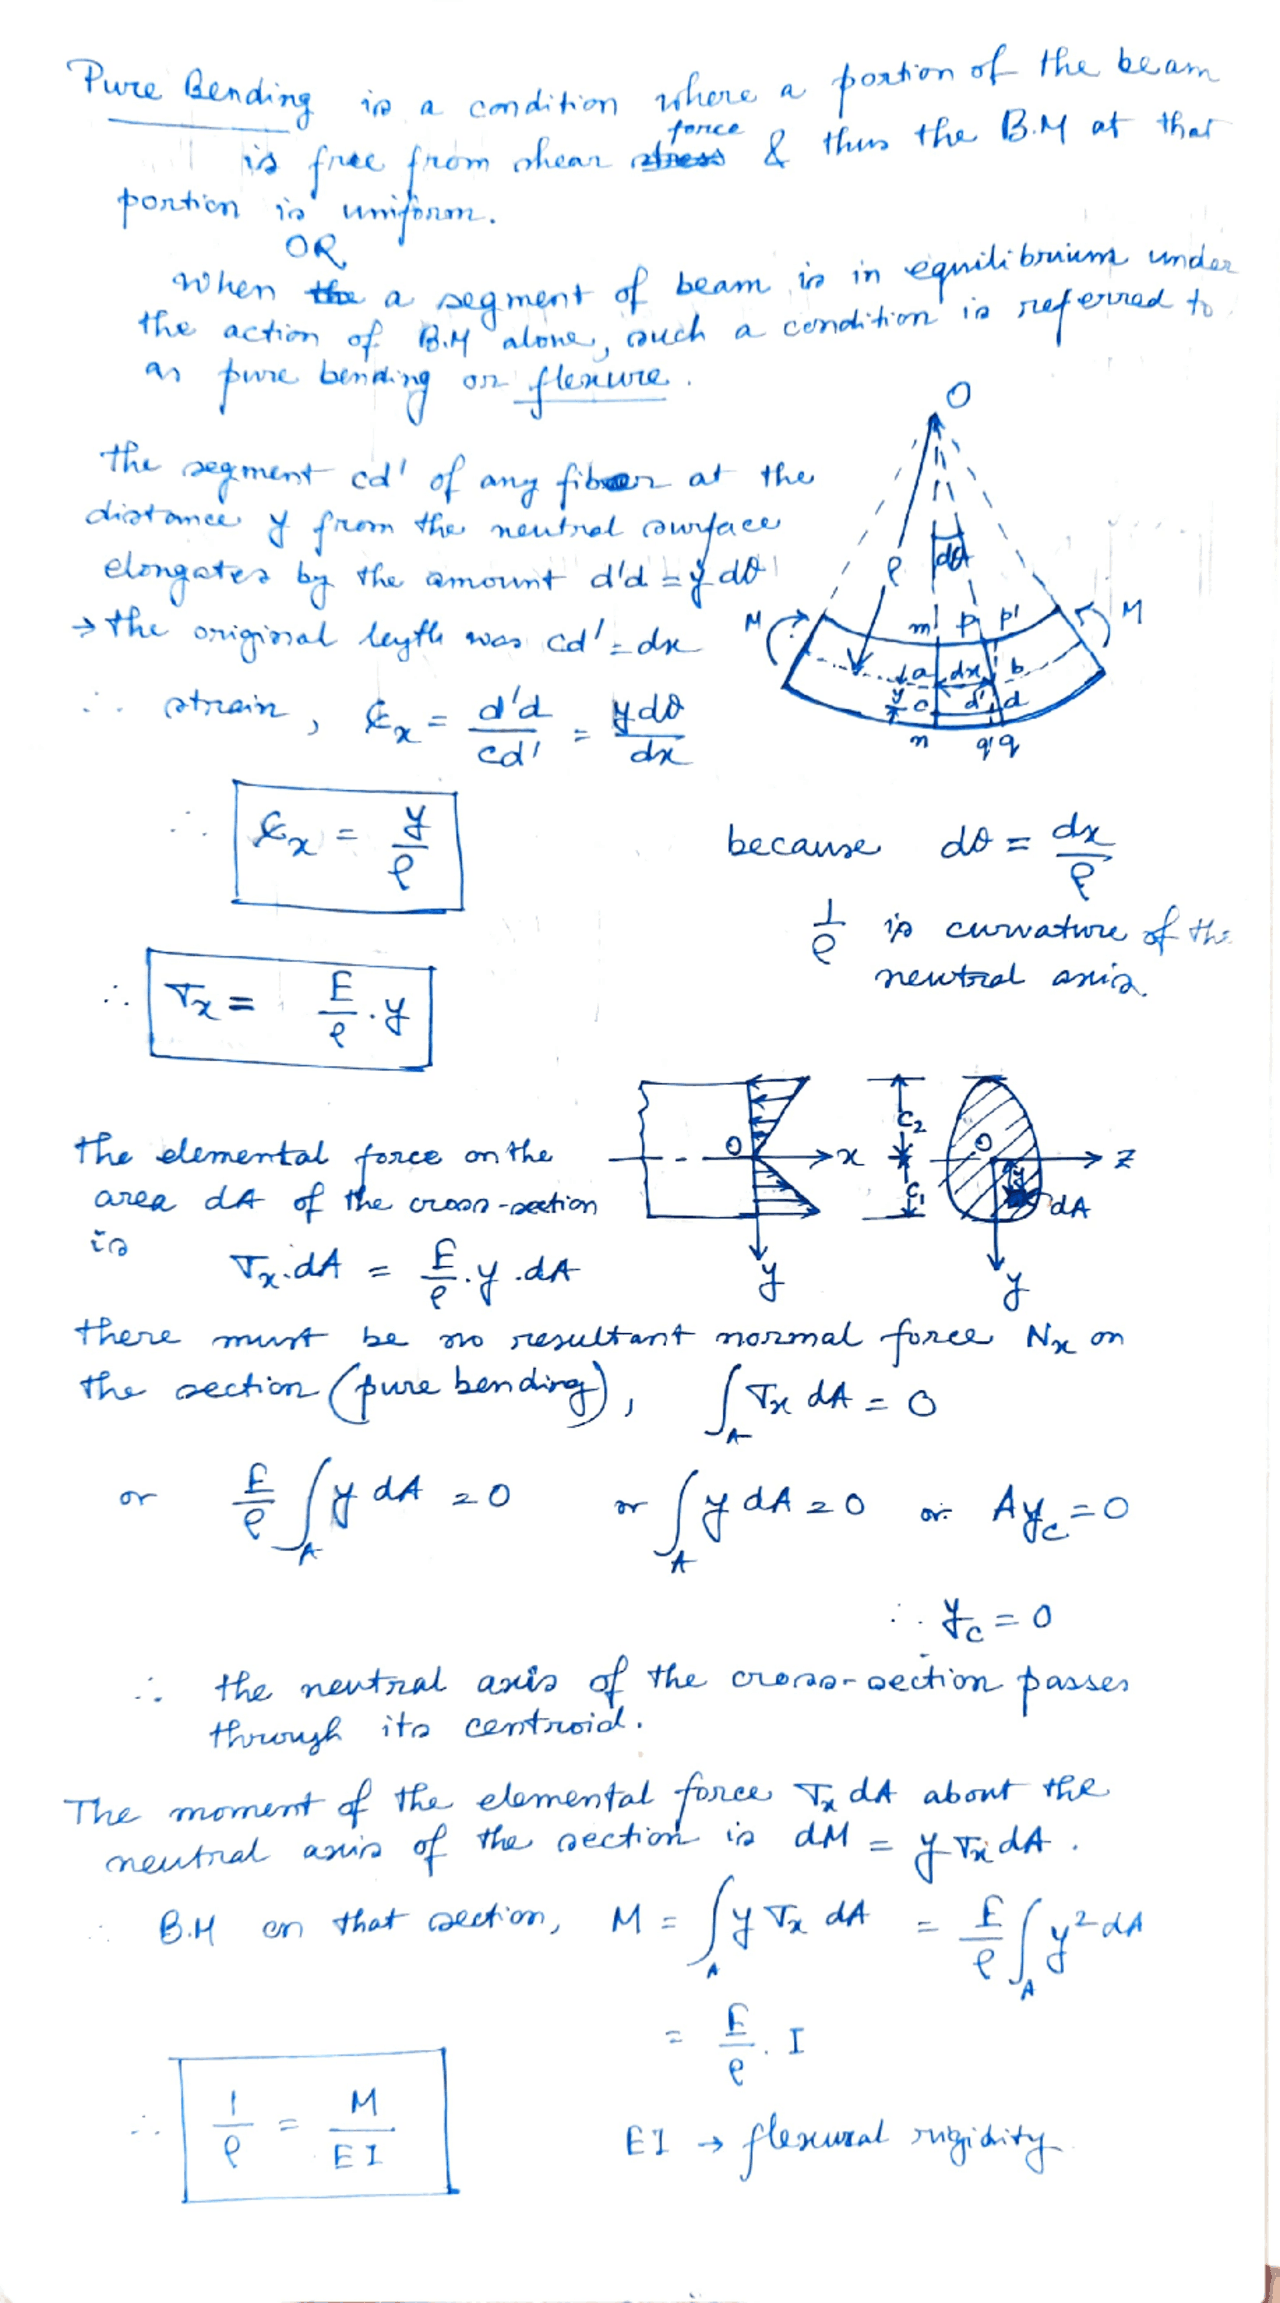 Pure Bending is a condition where a portion of the beam
is free from shear stress force & thus the B.M at that
portion is uniform.
OR
When the a segment of beam is in equilibrium under
the action of B.M alone, such a condition is referred to
as pure bending or flexure.
O
the segment cd' of any fiber at the
distance y from the neutral surface
elongates by the amount d'd = y dθ
→ the original length was cd' = dx
∴ strain, ε_x = d'd / cd' = y dθ / dx
ρ dθ
M m p p' M
a dx b
y c d' d
n q' q
∴ ε_x = y / ρ
because dθ = dx / ρ
1/ρ is curvature of the
neutral axis.
∴ σ_x = E/ρ . y
O x y
C2 C1 O z y dA y
the elemental force on the
area dA of the cross-section
is
σ_x . dA = E/ρ . y . dA
there must be no resultant normal force N_x on
the section (pure bending), ∫_A σ_x dA = 0
or E/ρ ∫_A y dA = 0 or ∫_A y dA = 0 or A y_c = 0
∴ y_c = 0
∴ the neutral axis of the cross-section passes
through its centroid.
The moment of the elemental force σ_x dA about the
neutral axis of the section is dM = y σ_x dA .
∴ B.M on that section, M = ∫_A y σ_x dA = E/ρ ∫_A y² dA
= E/ρ . I
∴ 1/ρ = M / EI
EI → flexural rigidity